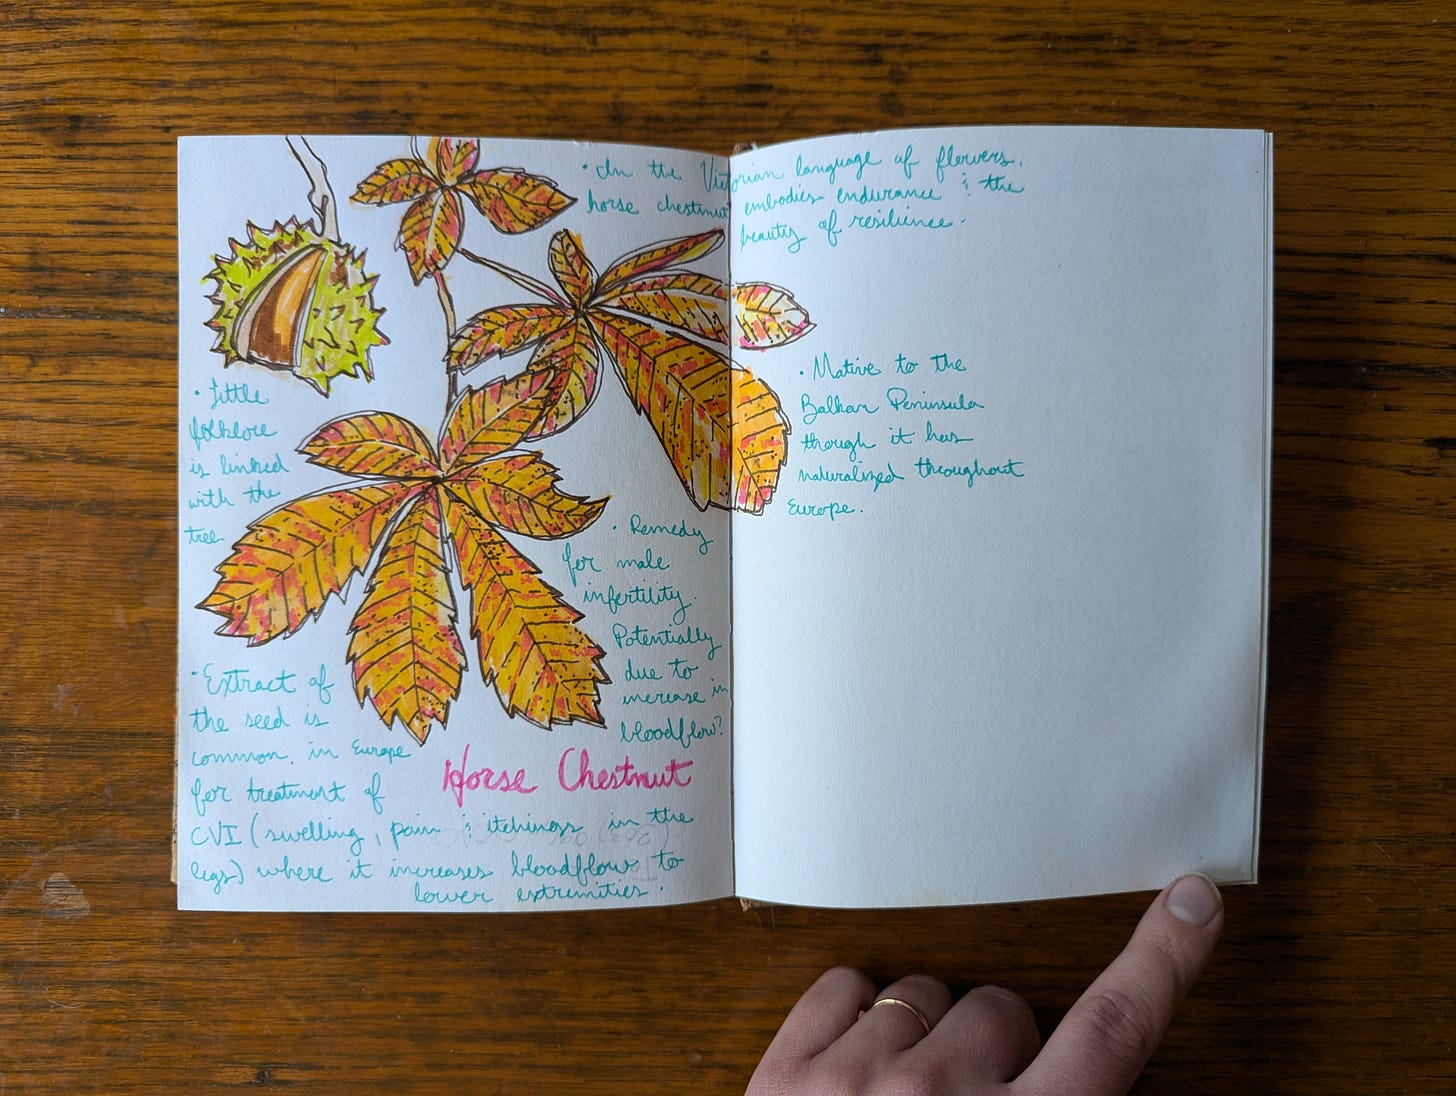 · In the Victorian language of flowers,
horse chestnut embodies endurance & the
beauty of resilience.
· Little
folklore
is linked
with the
tree.
· Native to the
Balkan Peninsula
though it has
naturalized throughout
Europe.
· Remedy
for male
infertility.
Potentially
due to
increase in
bloodflow?
· Extract of
the seed is
common in Europe
for treatment of
CVI (swelling, pain & itchiness in the
legs) where it increases bloodflow to
lower extremities.
Horse Chestnut